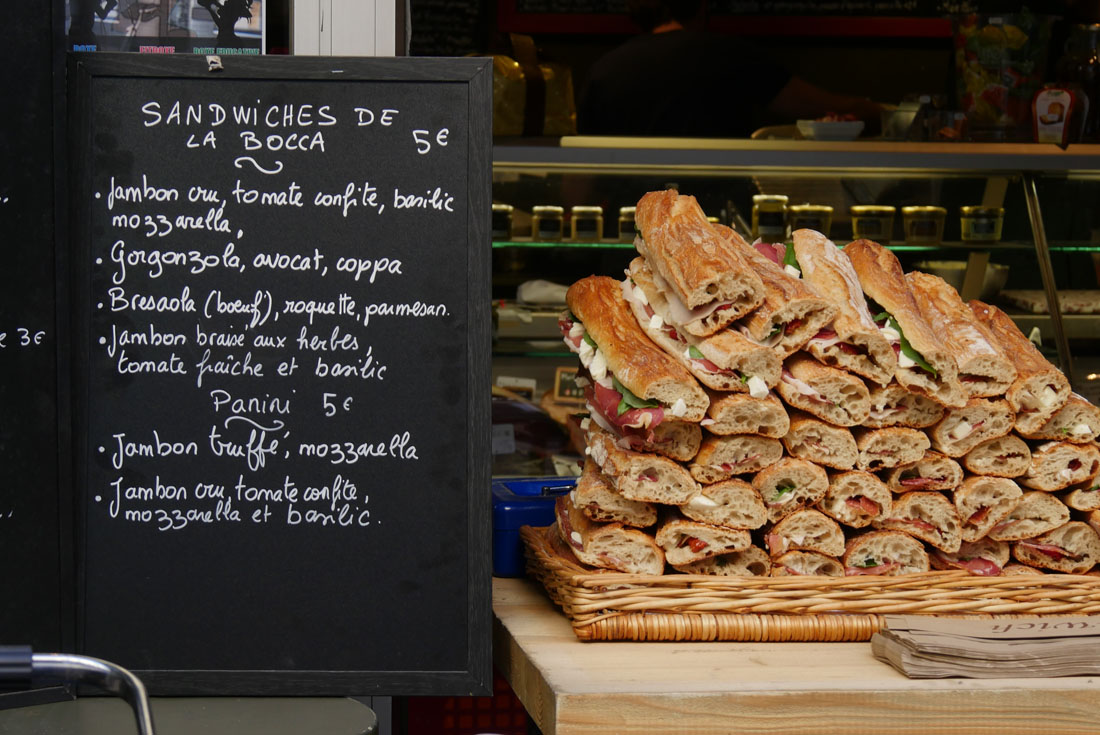 SANDWICHES DE
LA BOCCA 5€
• Jambon cru, tomate confite, basilic
mozzarella,
• Gorgonzola, avocat, coppa
• Bresaola (bœuf), roquette, parmesan.
• Jambon braisé aux herbes,
tomate fraîche et basilic
Panini 5€
• Jambon truffé, mozzarella
• Jambon cru, tomate confite,
mozzarella et basilic.
e 3€